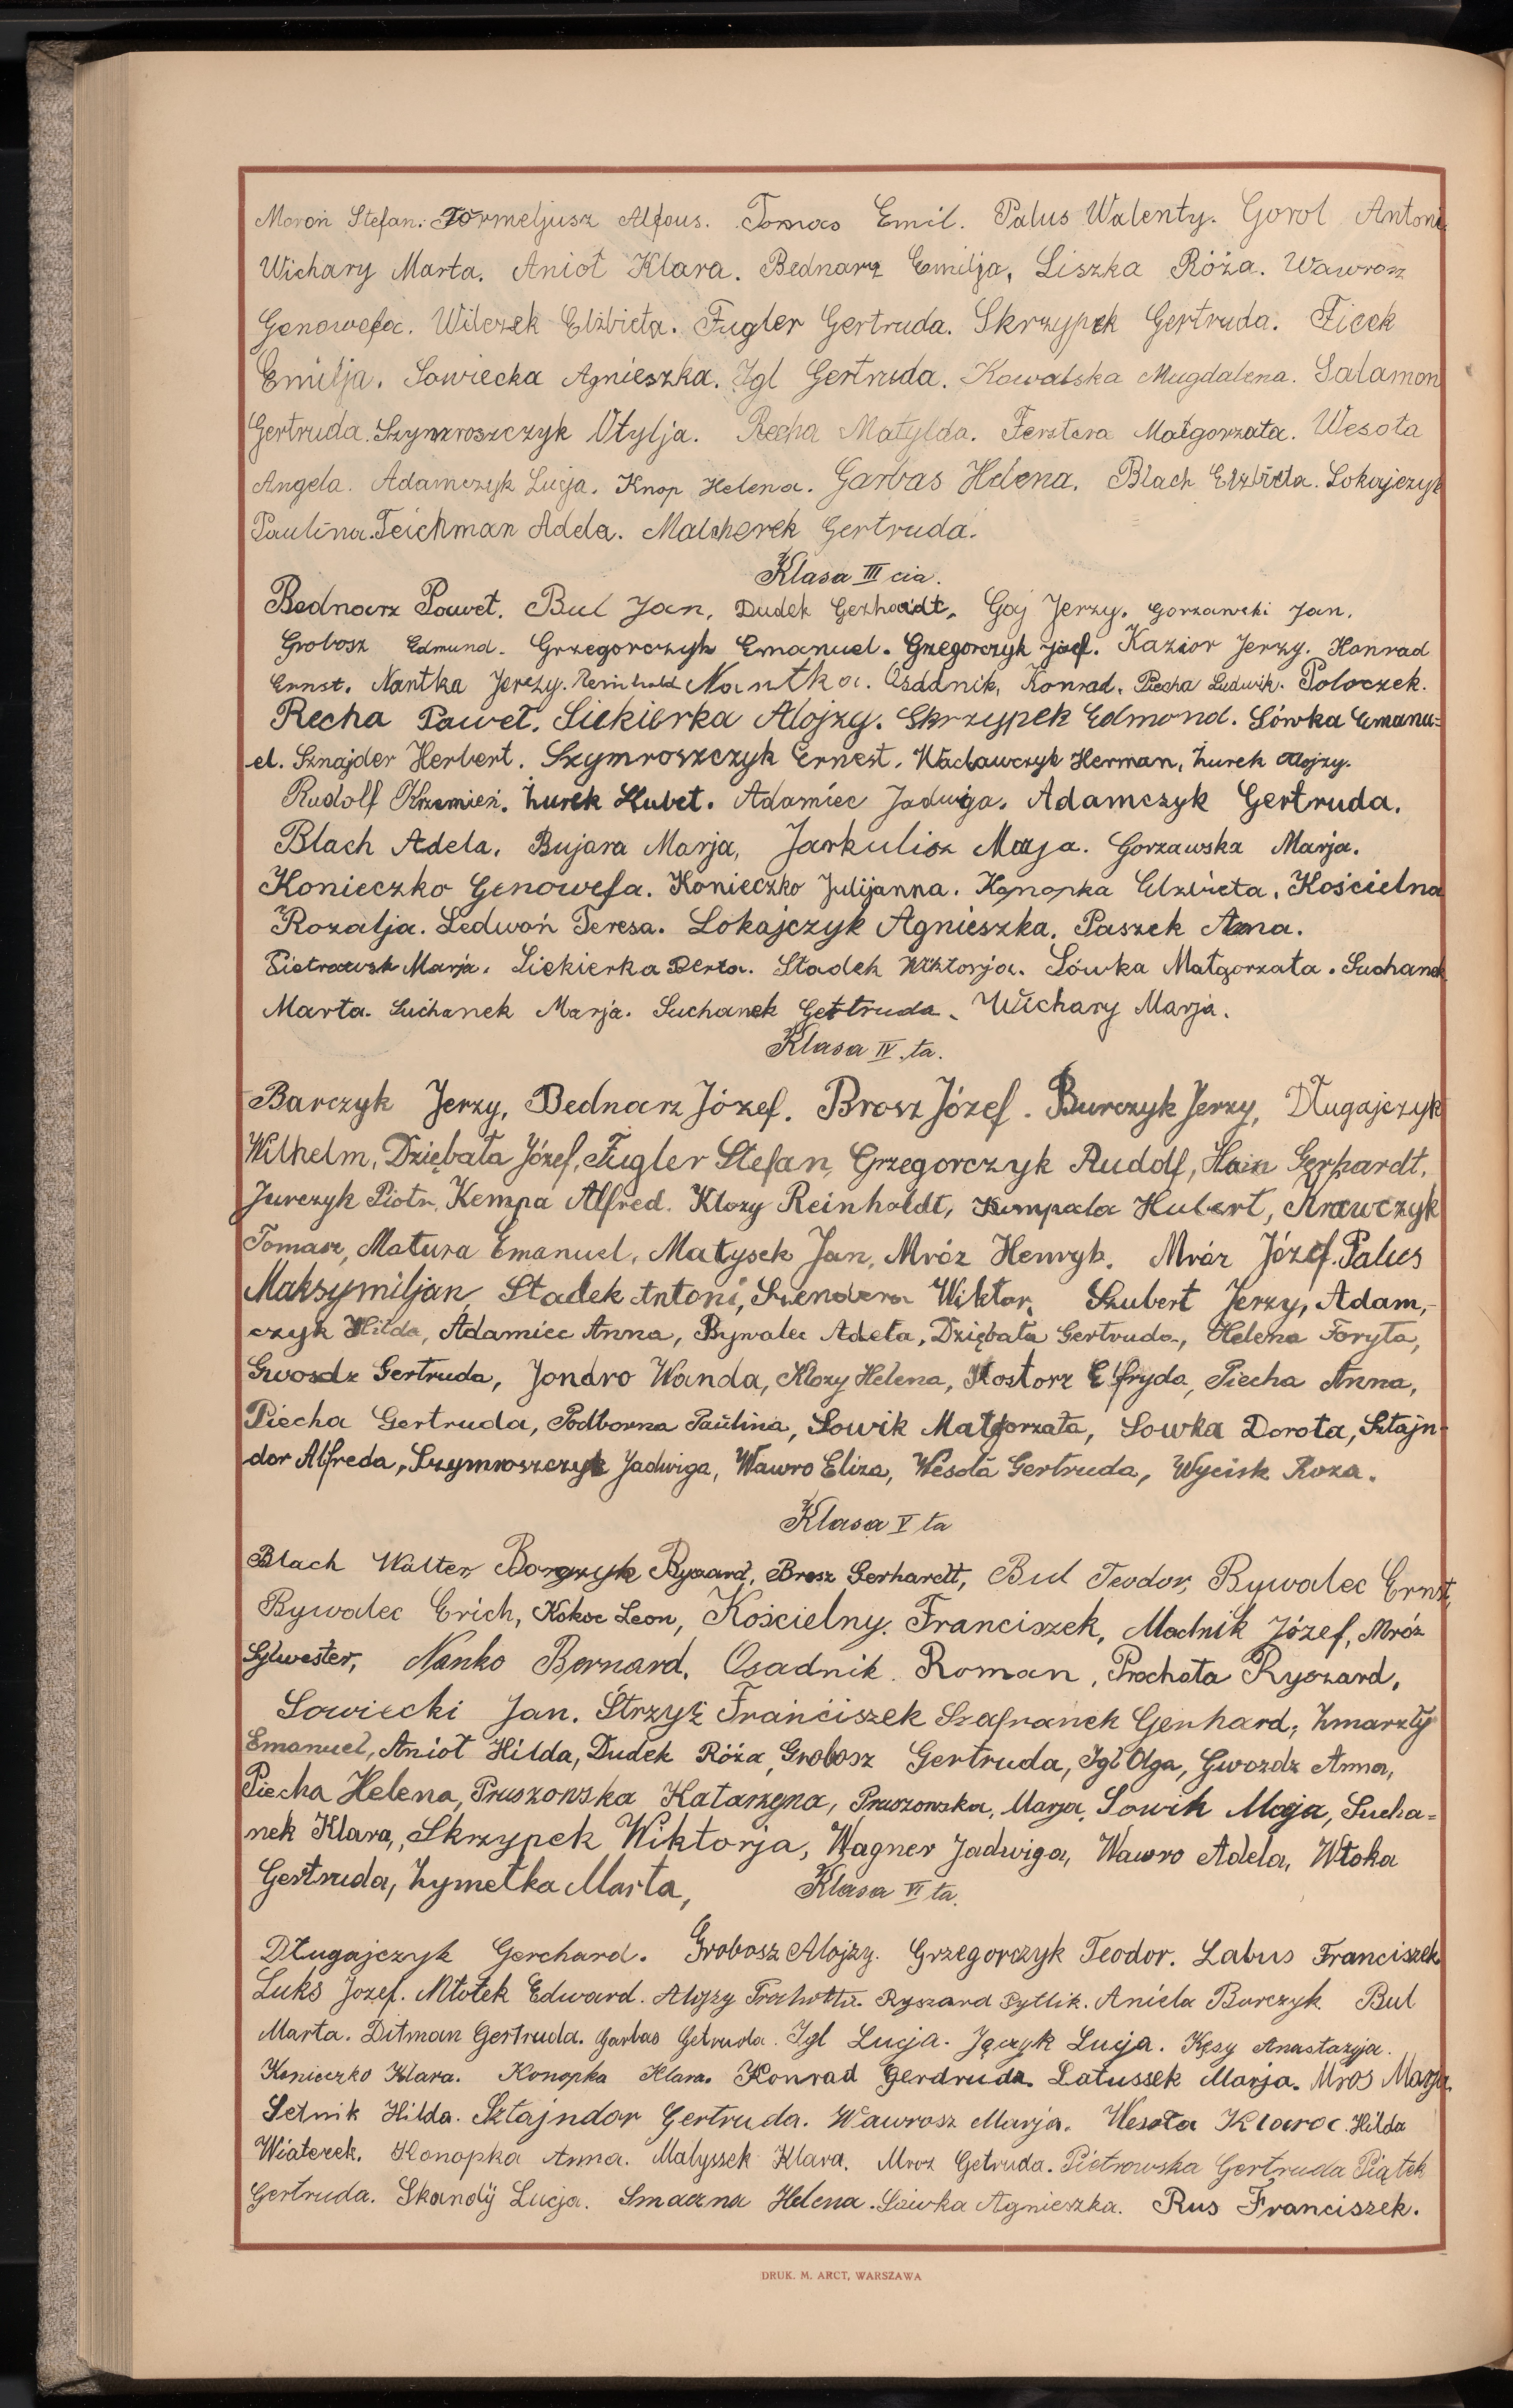 Moroń Stefan. Formeljusz Alfons. Tomas Emil. Palus Walenty. Gorol Antoni.
Wichary Marta. Anioł Klara. Bednarz Emilja, Liszka Róża. Wawrosz
Genowefa. Wilczek Elżbieta. Fugler Gertruda. Skrzypek Gertruda. Ficek
Emilja. Sowiecka Agnieszka. Igl Gertruda. Kowalska Magdalena. Salamon
Gertruda. Szymroszczyk Otylja. Recha Matylda. Ferstera Małgorzata. Wesoła
Angela. Adamczyk Łucja. Knop Helena. Garbas Helena. Blach Elżbieta. Lokajczyk
Paulina. Teichman Adela. Malcherek Gertruda.
Klasa III cia.
Bednarz Paweł. Bul Jan, Dudek Gerhardt, Goj Jerzy, Gorzawski Jan,
Grobosz Edmund. Grzegorczyk Emanuel. Grzegorczyk Józef. Kazior Jerzy. Konrad
Ernst. Nantka Jerzy. Reinhold Nantka. Osadnik, Konrad, Piecha Ludwik. Poloczek.
Recha Paweł. Siekierka Alojzy. Skrzypek Edmond. Sówka Emanu=
el. Sznajder Herbert. Szymroszczyk Ernest. Wacławczyk Herman, Żurek Alojzy.
Rudolf Krzemień. Żurek Hubet. Adamiec Jadwiga. Adamczyk Gertruda.
Blach Adela. Bujara Marja, Jarkulisz Marja. Gorzawska Marja.
Konieczko Genowefa. Konieczko Julijanna. Konopka Elżbieta. Kościelna
Rozalja. Ledwoń Teresa. Lokajczyk Agnieszka. Paszek Anna.
Pietrowsk Marja. Siekierka Berta. Stadek Wiktorja. Sówka Małgorzata. Suchanek
Marta. Suchanek Marja. Suchanek Gertruda. Wichary Marja.
Klasa IV.ta.
Barczyk Jerzy, Bednarz Józef. Brosz Józef. Burczyk Jerzy, Długajczyk
Wilhelm, Dziębała Józef, Fugler Stefan, Grzegorczyk Rudolf, Hain Gerhardt,
Jurczyk Piotr, Kempa Alfred. Klozy Reinholdt, Kumpala Hubert, Krawczyk
Tomasz, Matura Emanuel, Matysek Jan, Mróz Henryk. Mróz Józef. Palus
Maksymiljan, Stadek Antoni, Szendera Wiktor, Szubert Jerzy, Adam,-
czyk Hilda, Adamiec Anna, Bywalec Adela, Dziębała Gertruda, Helena Foryta,
Gwosdz Gertruda, Jondro Wanda, Klozy Helena, Kostorz Elfryda, Piecha Anna,
Piecha Gertruda, Podborna Paulina, Sowik Małgorzata, Sowka Dorota, Sztajn-
dor Alfreda, Szymroszczyk Jadwiga, Wawro Eliza, Wesoła Gertruda, Wycisk Roza.
Klasa V ta
Blach Walter, Borgzyk Ryszard, Brosz Gerhardt, Bul Teodor, Bywalec Ernst,
Bywalec Erich, Kokoc Leon, Kościelny Franciszek, Madnik Józef, Mróz
Sylwester, Nanko Bernard, Osadnik Roman, Prochota Ryszard,
Sowiecki Jan. Strzyż Franciszek Szafranek Genhard, Zmarzły
Emanuel, Anioł Hilda, Dudek Róża, Grobosz Gertruda, Igl Olga, Gwozdz Anna,
Piecha Helena, Pruszowska Katarzyna, Pruszowska, Marja, Sowik Marja, Sucha=
nek Klara, Skrzypek Wiktorja, Wagner Jadwiga, Wawro Adela, Włoka
Gertruda, Zymełka Marta, Klasa VI ta.
Długajczyk Gerchard. Grobosz Alojzy. Grzegorczyk Teodor. Labus Franciszek
Luks Jozef. Młotek Edward. Alojzy Ryszard Pytlik. Aniela Burczyk. Bul
Marta. Ditman Gertruda. Garbas Getruda. Igl Łucja. Języyk Łucja. Kęsy Anastazyja.
Konieczko Klara. Konopka Klara. Konrad Gerdruda. Latussek Marja. Mros Marja.
Setnik Hilda. Sztajndor Gertruda. Wawrosz Marja. Wesoła Klara. Hilda
Wiaterek. Konopka Anna. Malyssek Klara. Mroz Getruda. Pietrowska Gertruda Piątek
Gertruda. Skandÿ Łucja. Smaczna Helena. Sówka Agnieszka. Rus Franciszek.
DRUK. M. ARCT, WARSZAWA